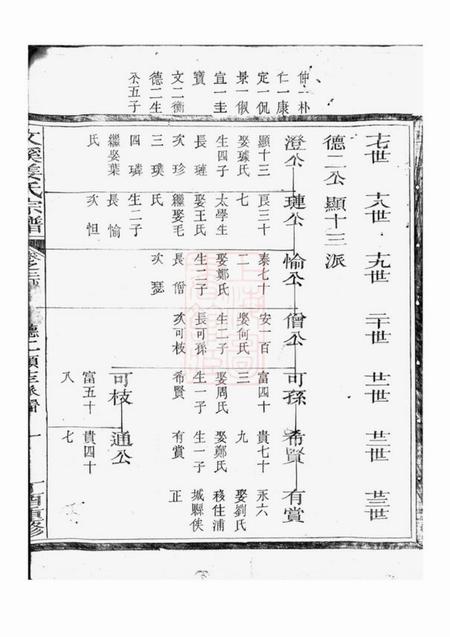 仲一朴
仁一康
定一侃
景一俶
宣一圭
寶
文二衡
德二生
五子
七世 十八世 十九世 二十世 廿一世 廿二世 廿三世
德二公顯十三派
澄公 璉公 愉公 僧公 可孫 希賢 有賞
顯十三 良三十 泰七十 安一百 富四十 貴七十 永六
娶璩氏 七 二 娶何氏 三 九 娶劉氏
生四子 太學生 娶鄭氏 生二子 娶周氏 娶鄭氏 移住浦
長璉 娶王氏 生二子 長可孫 生一子 生一子 城縣俟
次珍 繼娶毛 長僧 次可枝 希賢 有賞 正
三璞 氏 次瑟
四璘 生二子 可枝 通公
繼娶葉 長愉 富五十 貴四十
氏 次恒 八 七
文溪姜氏宗譜 德二顯十三派譜 一 丁酉重修